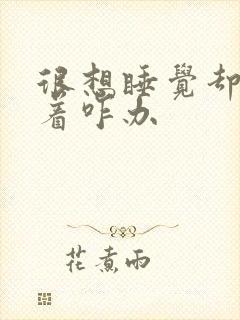 很想睡覺却
着咋办
花煮雨